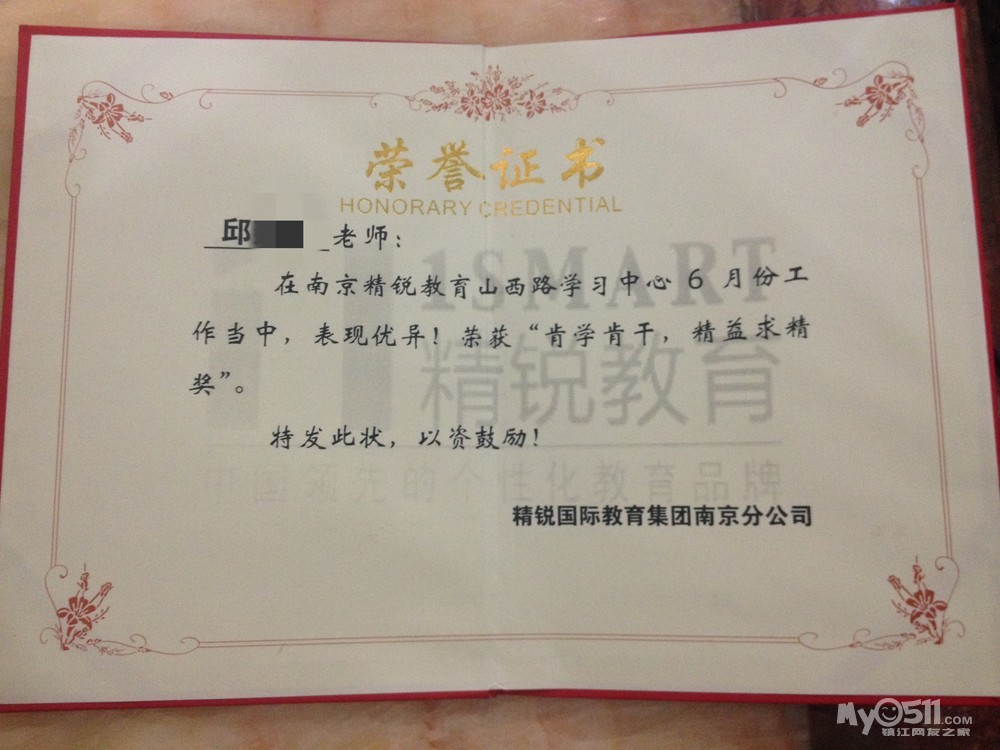 荣誉证书
HONORARY CREDENTIAL
邱 老师：
在南京精锐教育山西路学习中心6月份工
作当中，表现优异！荣获“肯学肯干，精益求精
奖”。
特发此状，以资鼓励！
精锐国际教育集团南京分公司
1SMART
精锐教育
中国领先的个性化教育品牌
My0511.com
镇江网友之家